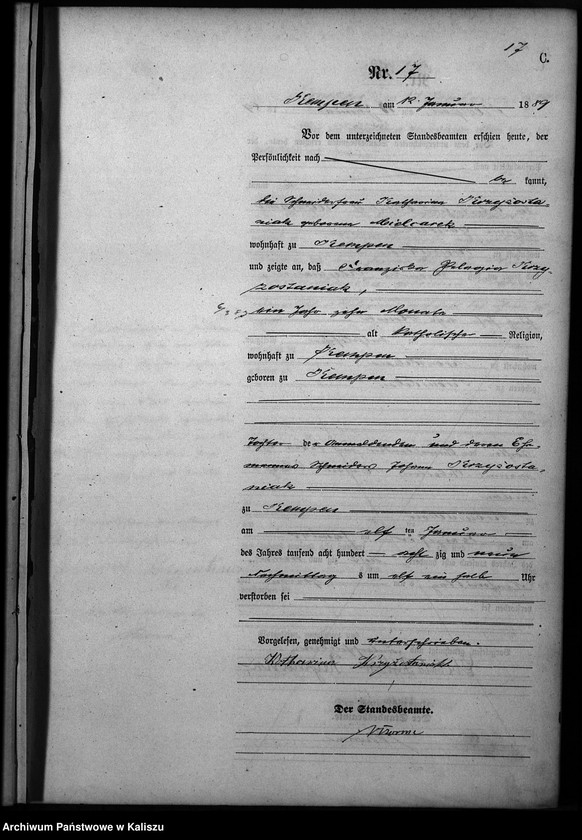 17
C.
Nr. 17
Kempen am 12. Januar 1889
Vor dem unterzeichneten Standesbeamten erschien heute, der
Persönlichkeit nach
be kannt,
die Schneiderfrau Katharina Krzyżosta-
niak geborene Mielcarek
wohnhaft zu Kempen
und zeigte an, daß Franziska Pelagia Krzy-
żostaniak,
ein Jahr zehn Monate
alt katholische Religion,
wohnhaft zu Kempen
geboren zu Kempen
Tochter der Anmeldenden und deren Ehe-
mannes Schneiders Johann Krzyżosta-
niak
zu Kempen
am elf ten Januar
des Jahres tausend acht hundert acht zig und neun
Nachmittag s um elf ein halb Uhr
verstorben sei
Vorgelesen, genehmigt und unterschrieben.
Katharina
Der Standesbeamte.
Archiwum Państwowe w Kaliszu